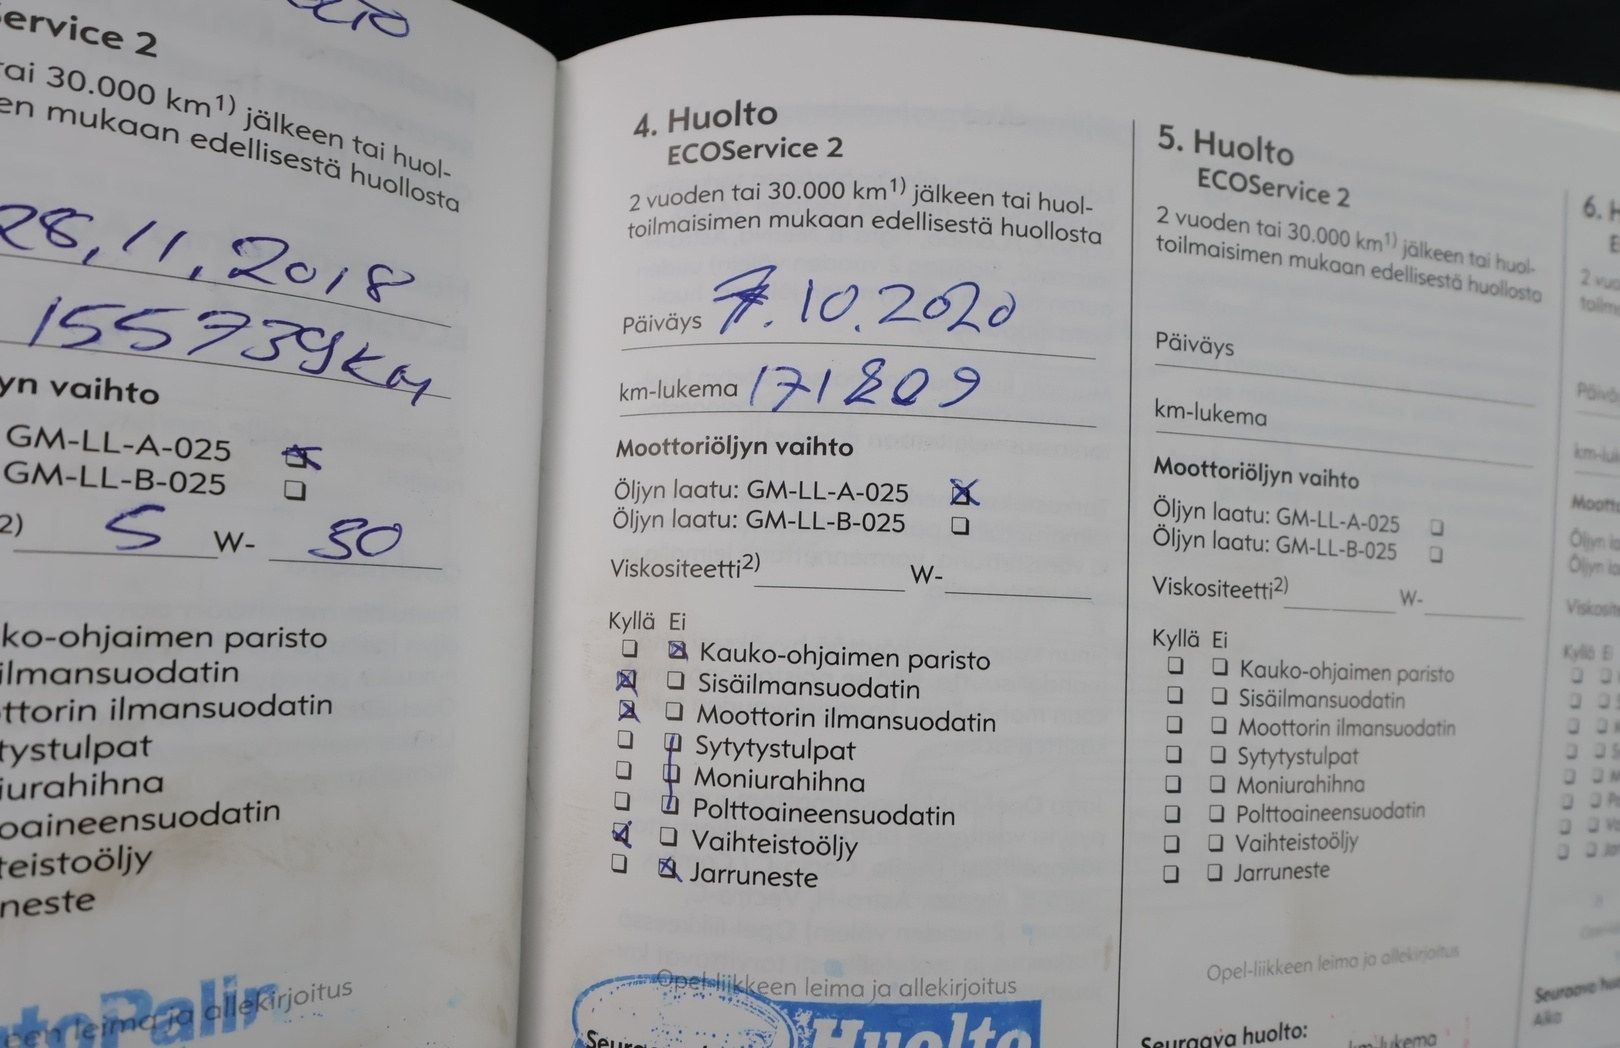 ervice 2
tai 30.000 km1) jälkeen tai huol-
en mukaan edellisestä huollosta
28.11.2018
155739km
yn vaihto
GM-LL-A-025
GM-LL-B-025
2) 5 W- 30
ko-ohjaimen paristo
ilmansuodatin
ttorin ilmansuodatin
tystulpat
iurahihna
oaineensuodatin
teistoöljy
neste
utoPalin
een leima ja allekirjoitus
4. Huolto
ECOService 2
2 vuoden tai 30.000 km1) jälkeen tai huol-
toilmaisimen mukaan edellisestä huollosta
Päiväys 7.10.2020
km-lukema 171809
Moottoriöljyn vaihto
Öljyn laatu: GM-LL-A-025
Öljyn laatu: GM-LL-B-025
Viskositeetti2) W-
Kyllä Ei
Kauko-ohjaimen paristo
Sisäilmansuodatin
Moottorin ilmansuodatin
Sytytystulpat
Moniurahihna
Polttoaineensuodatin
Vaihteistoöljy
Jarruneste
Opel-liikkeen leima ja allekirjoitus
Huolto
5. Huolto
ECOService 2
2 vuoden tai 30.000 km1) jälkeen tai huol-
toilmaisimen mukaan edellisestä huollosta
Päiväys
km-lukema
Moottoriöljyn vaihto
Öljyn laatu: GM-LL-A-025
Öljyn laatu: GM-LL-B-025
Viskositeetti2) W-
Kyllä Ei
Kauko-ohjaimen paristo
Sisäilmansuodatin
Moottorin ilmansuodatin
Sytytystulpat
Moniurahihna
Polttoaineensuodatin
Vaihteistoöljy
Jarruneste
Opel-liikkeen leima ja allekirjoitus
Seuraava huolto:
km-lukema
6. H
E
2 vuo
Päivä
km-luk
Mootto
Öljyn la
Öljyn la
Viskosite
Kyllä Ei
Seuraava huo
Aika